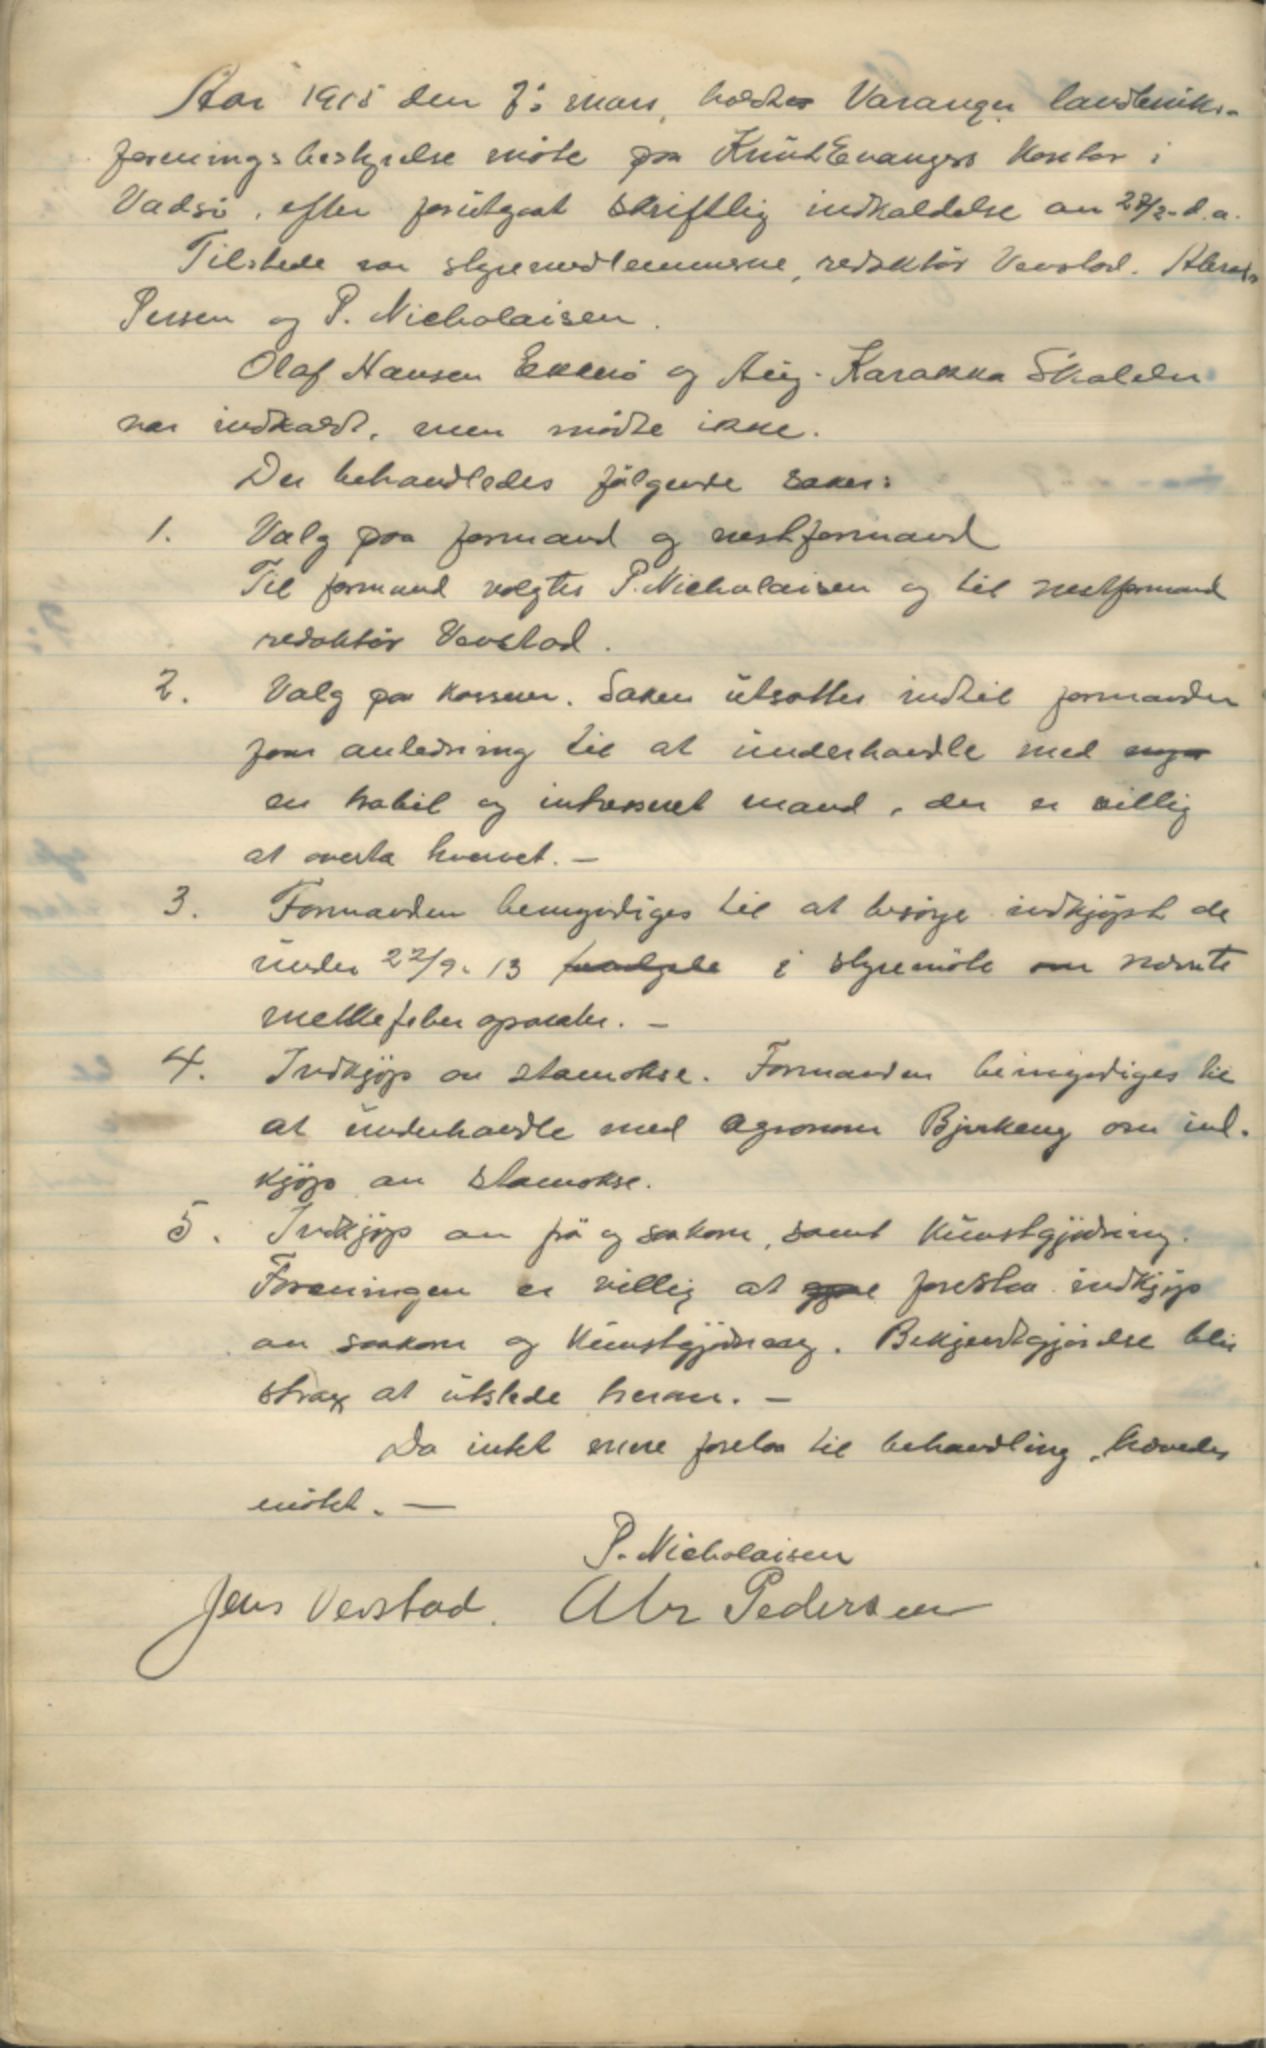 Aar 1915 den 7: mars, holdtes Varanger landbruks-
foreningsbestyrelse möte paa Knut Evangers kontor i
Vadsö, efter forutgaat skriftlig indkaldelse av 27/2- d.a.
Tilstede var styremedlemmerne, redaktör Vevstad. Abrah.
Persen og P. Nicholaisen.
Olaf Hansen Ekkerö og Aug. Karakka Skalelv
var indkaldt, men mödte ikke.
Der behandledes fölgende saker:
1. Valg paa formand og nestformand
Til formand valgtes P. Nicholaisen og til nestformand
redaktör Vevstad.
2. Valg paa kasserer. Saken utsattes indtil formanden
faar anledning til at underhandle med
en habil og interesseret mand, der er villig
at overta hvervet. —
3. Formanden bemyndiges til at besörge indkjöpt de
under 22/9. 13 i styremöte nævnte
melkefeber apparater. —
4. Indkjöp av stamokse. Formanden bemyndiges til
at underhandle med agronom Bjerkeng om ind-
kjöp av stamokse.
5. Indkjöp av frö og saakorn, samt kunstgjödning.
Foreningen er villig at forestaa indkjöp
av saakorn og kunstgjödning. Bekjendtgjörelse blir
strax at utstede herom. —
Da intet mere forelaa til behandling, hævedes
mötet. —
P. Nicholaisen
Jens Vevstad. Abr Pedersen